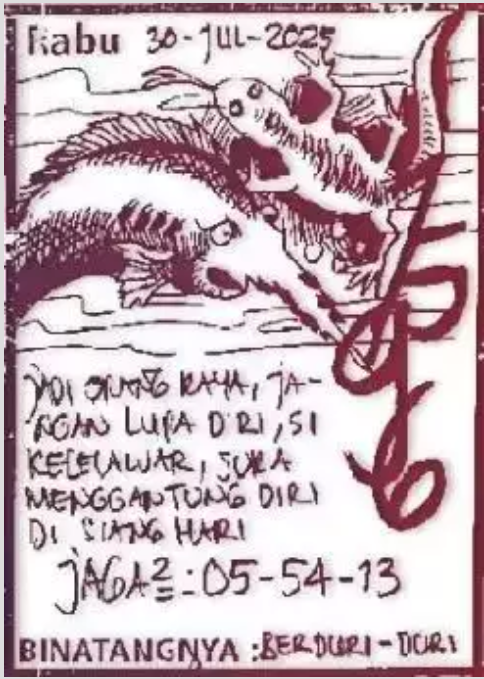 Rabu 30-JUL-2025
JADI ORANG KAYA, JA-
NGAN LUPA DIRI, SI
KELELAWAR, SUKA
MENGGANTUNG DIRI
DI SIANG HARI
JAGA2=: 05-54-13
BINATANGNYA : BERDURI-DURI